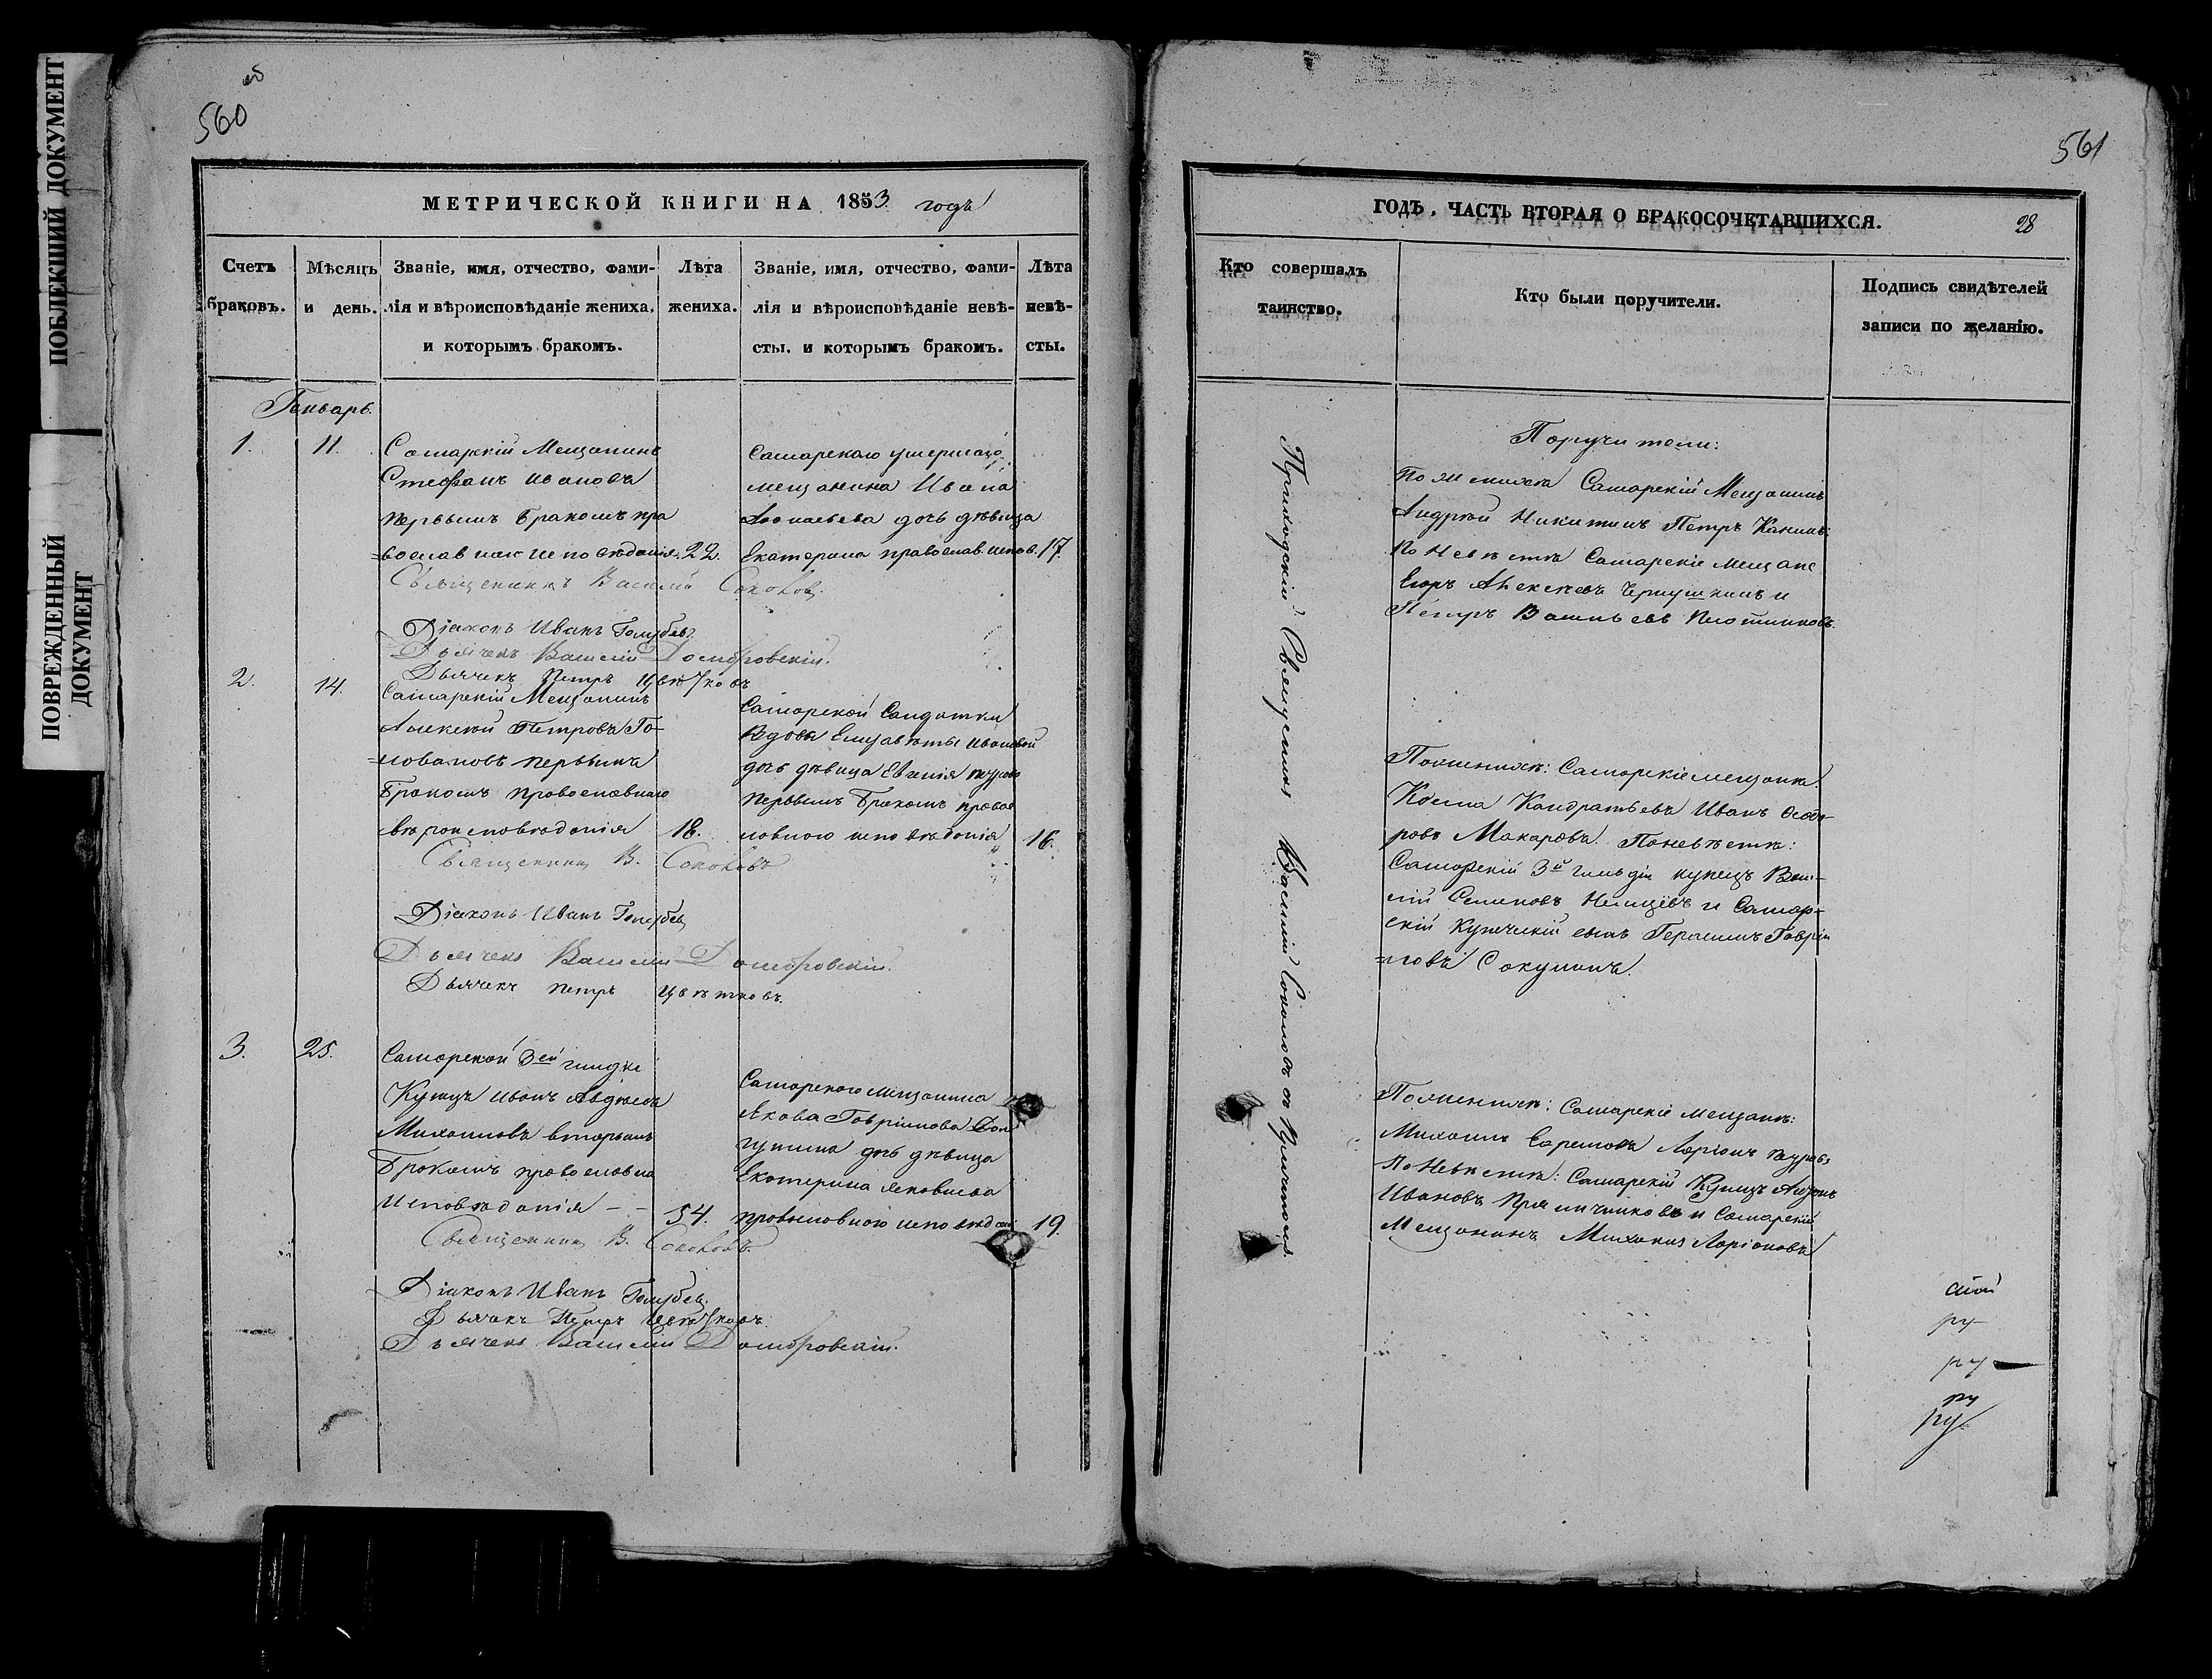 ПОБЛЕКШИЙ ДОКУМЕНТ
ПОВРЕЖДЕННЫЙ
ДОКУМЕНТ
об
560
МЕТРИЧЕСКОЙ КНИГИ НА 1853 годъ
Счетъ
браковъ.
Мѣсяцъ
и день.
Званіе, имя, отчество, фами-
лія и вѣроисповѣданіе жениха,
и которымъ бракомъ.
Лѣта
жениха.
Званіе, имя, отчество, фами-
лія и вѣроисповѣданіе невѣ-
сты. и которымъ бракомъ.
Лѣта
невѣ-
сты.
Генварь.
1. 11.
Самарскій Мещанинъ
Стефанъ Ивановъ
первымъ бракомъ пра
22.
Самарскаго умершаго
мещанина Ивана
дочь дѣвица
Екатерина православ. испов. 17.
Священникъ Василій Соколовъ.
Діаконъ Иванъ Голубев
Дьячекъ Василій Домбровскій.
Дьячекъ Петръ Цвѣтковъ
2. 14.
Самарскій Мещанинъ
Алексей Петровъ Го-
=ловановъ первымъ
бракомъ православнаго
вѣроисповѣданія 18.
Самарской Солдатки
Вдовы Елизаветы Ивановой
дочь дѣвица Евгенія
первымъ бракомъ правос
лавного исповѣданія 16.
Священникъ В. Соколовъ
Діаконъ Иванъ Голубев
Дьячекъ Василій Домбровскій.
Дьячекъ Петръ Цвѣтковъ.
3. 25.
Самарской 3ей гильдіи
Купецъ Иванъ Авдѣевъ
Михайловъ вторымъ
бракомъ православна
исповѣданія - - 54.
Самарского мещанина
Якова Гаврилова
дочь дѣвица
Екатерина Яковлева
православного исповѣдані 19.
Священникъ В. Соколовъ.
Діаконъ Иванъ Голубев
Дьячекъ Петръ Цвѣтковъ.
Дьячекъ Василій Домбровскій.
561
ГОДЪ, ЧАСТЬ ВТОРАЯ О БРАКОСОЧЕТАВШИХСЯ. 28
Кто совершалъ
таинство.
Кто были поручители.
Подпись свидѣтелей
записи по желанію.
Приходскій Священникъ Василій Соколовъ съ Причтомъ.
Поручители:
По женихѣ Самарскій Мещанинъ
Андрей Никитинъ Петръ
По Невѣстѣ Самарскіе Мещане
Егоръ Алексѣевъ Чернушкинъ и
Петръ Васильевъ Плотниковъ
По женихѣ: Самарскіе мещане
Косма Кондратьевъ Иванъ Ѳедо-
ровъ Макаровъ. По невѣстѣ:
Самарскій 3й гильдіи купецъ Васи-
лій Семеновъ и Самар-
скій Купеческій сынъ Герасимъ Гаврі
=ловъ Сокунинъ.
По женихѣ: Самарскіе мещане:
Михаилъ Ларіонъ
По Невѣстѣ: Самарскій Купецъ
Ивановъ Пряничниковъ и Самарскій
Мещанинъ Михаилъ Ларіоновъ
ру
ру
ру
ру